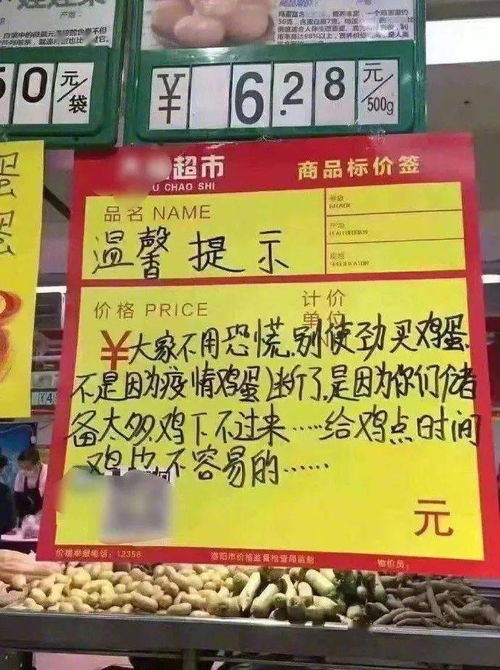 50 元/袋
¥ 6.28 元/500g
超市 商品标价签
U CHAO SHI
品名 NAME
产地
温馨提示
价格 PRICE
计价
单位
¥大家不用恐慌,别使劲买鸡蛋,
不是因为疫情鸡蛋断了,是因为你们储
备太多,鸡下不过来……给鸡点时间
鸡也不容易的……
元
价格举报电话:12358 洛阳市价格监督检查局监制 物价员: